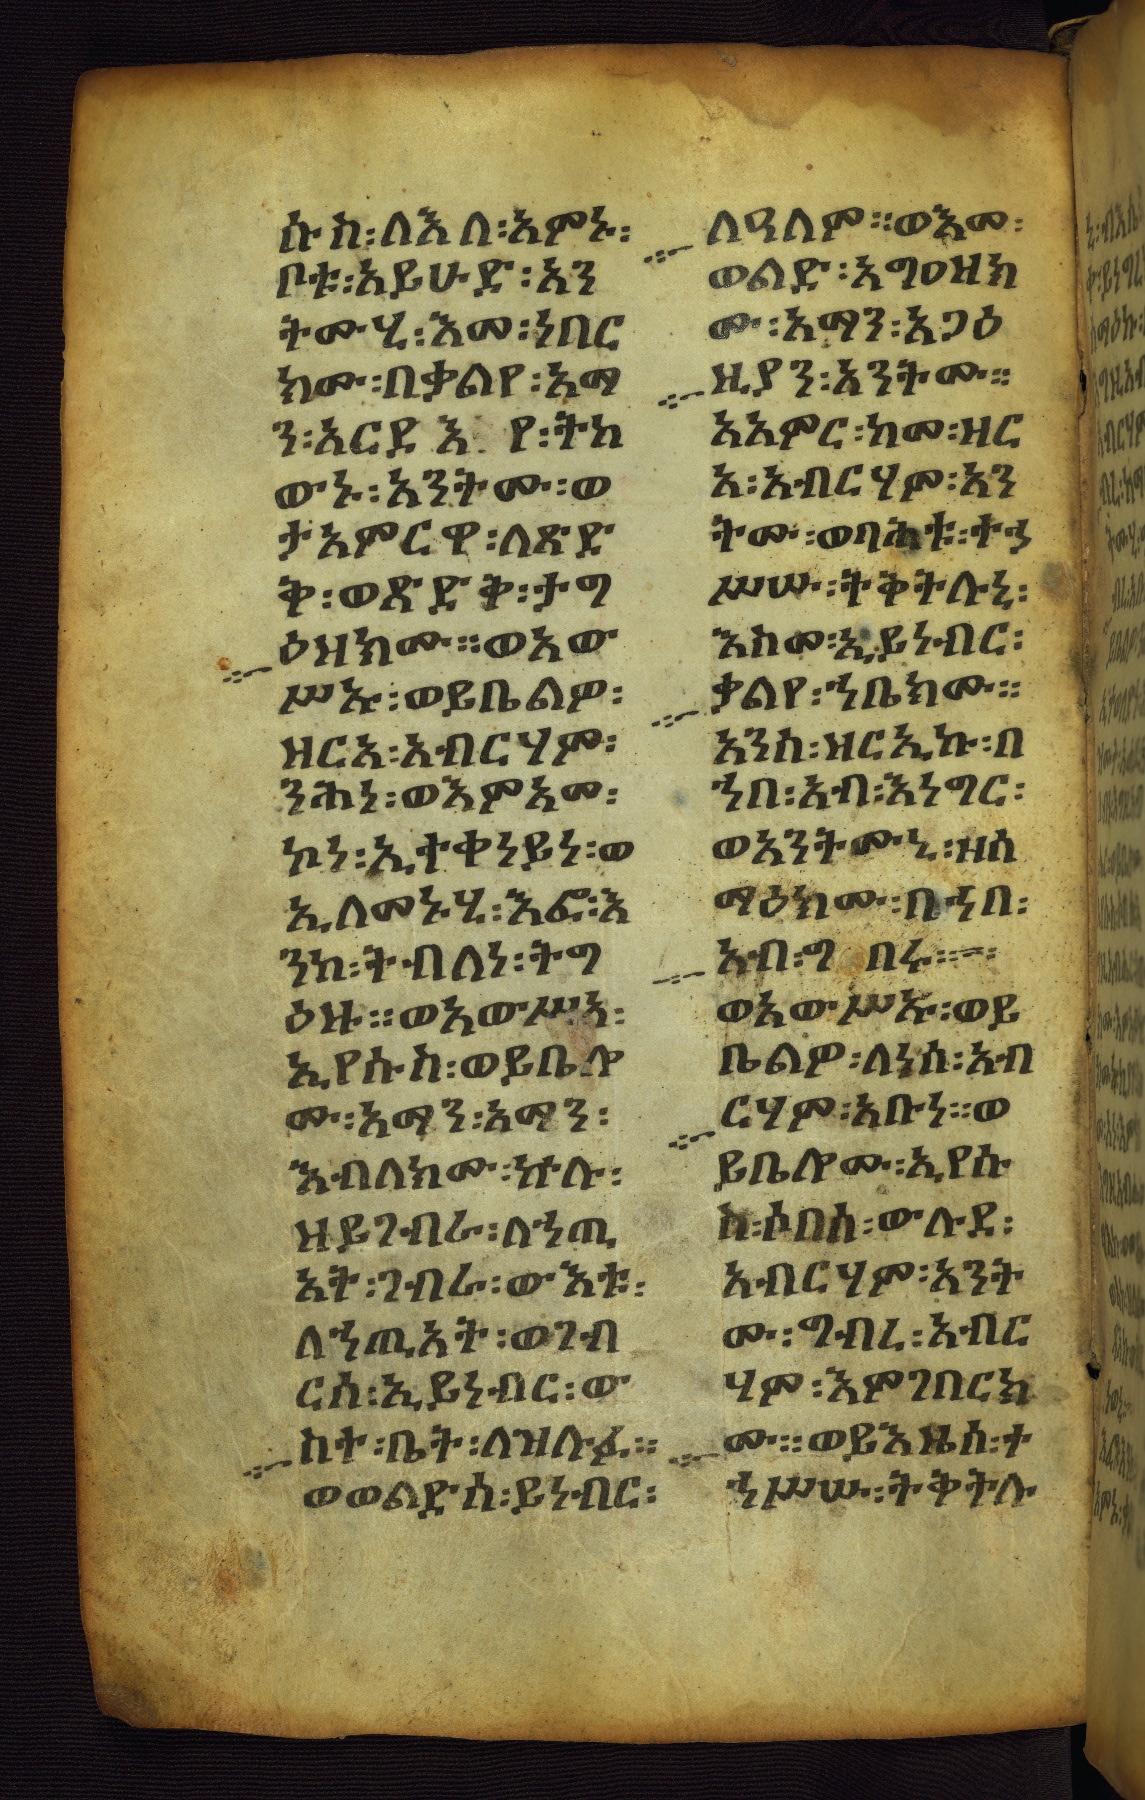 ሱስ፡ለእለ፡አምኑ፡
ቦቱ፡አይሁድ፡አን
ትሙሂ፡እመ፡ነበር
ክሙ፡በቃልየ፡አማ
ን፡አርድእየ፡ትከ
ውኑ፡አንትሙ፡ወ
ታአምርዋ፡ለጽድ
ቅ፡ወጽድቅ፡ታግ
ዕዝክሙ።ወአው
ሥኡ፡ወይቤልዎ፡
ዘርአ፡አብርሃም፡
ንሕነ፡ወእምአመ፡
ኮነ፡ኢተቀነይነ፡ወ
ኢለመኑሂ፡እፎ፡እ
ንከ፡ትብለነ፡ትግ
ዕዙ።ወአውሥአ፡
ኢየሱስ፡ወይቤሎ
ሙ፡አማን፡አማን፡
እብለክሙ፡ኵሉ፡
ዝይገብራ፡ለኀጢ
አት፡ገብራ፡ውእቱ፡
ለኀጢአት፡ወገብ
ርሰ፡ኢይነብር፡ው
ስተ፡ቤት፡ለዝሉፉ።
ወወልድሰ፡ይነብር፡
ለዓለም።ወእመ፡
ወልድ፡አግዐዝክ
ሙ፡አማን፡አጋዕ
ዚያን፡አንትሙ።
አአምር፡ከመ፡ዘር
አ፡አብርሃም፡አን
ትሙ፡ወባሕቱ፡ተኃ
ሥሡ፡ትቅትሉኒ፡
እስመ፡ኢይነብር፡
ቃልየ፡ኀቤክሙ።
አንሰ፡ዝርኢኩ፡በ
ኀበ፡አብ፡እነግር፡
ወአንትሙኒ፡ዘሰ
ማዕክሙ፡በኀበ፡
አብ፡ግበሩ።
ወአውሥኡ፡ወይ
ቤልዎ፡ለነሰ፡አብ
ርሃም፡አቡነ።ወ
ይቤሎሙ፡ኢየሱ
ስ፡ሶበሰ፡ውሉደ፡
አብርሃም፡አንት
ሙ፡ግብረ፡አብር
ሃም፡እምገበርክ
ሙ።ወይእዜሰ፡ተ
ኀሥሡ፡ትቅትሉ